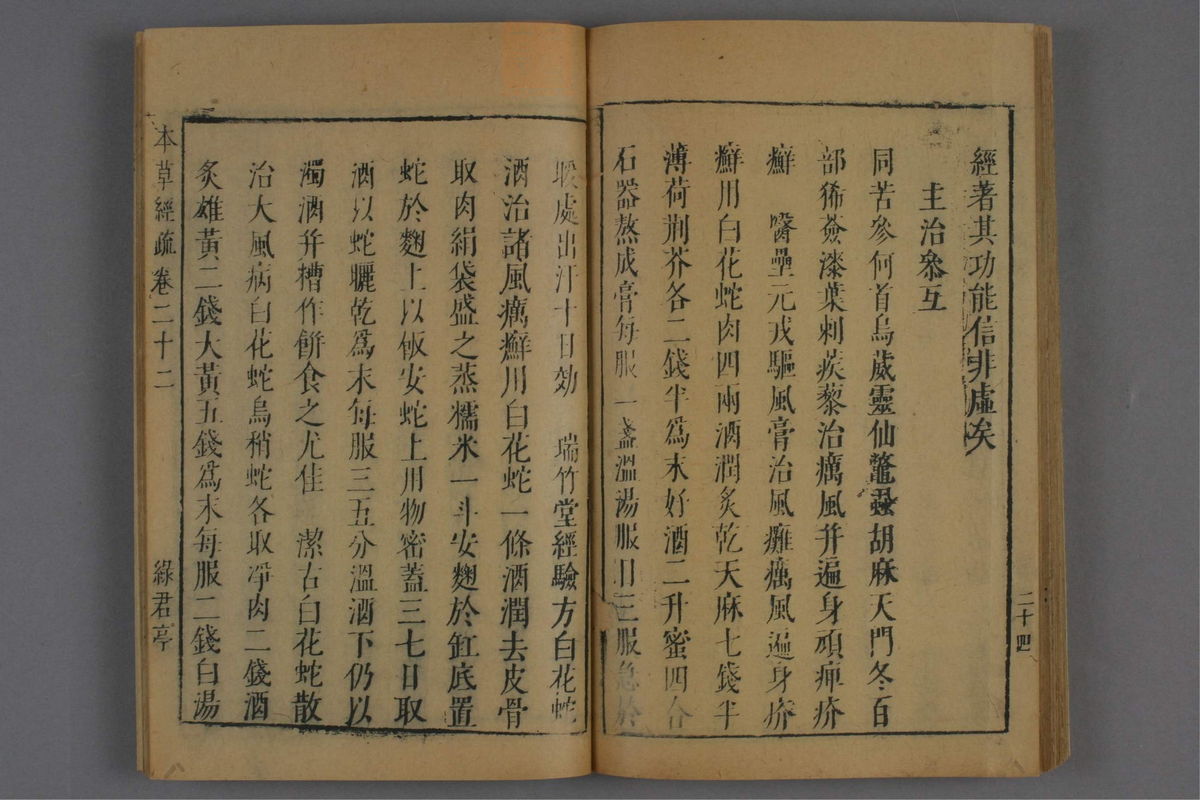 經著其功能信非虛矣
主治叅互
同苦參何首烏葳靈仙鼈虱胡麻天門冬百
部豨薟漆葉刺蒺藜治癘風并遍身頑痺疥
癬　醫壘元戎驅風膏治風癱癘風遍身疥
癬用白花蛇肉四兩酒潤炙乾天麻七錢半
薄荷荆芥各二錢半爲末好酒二升蜜四合
石器熬成膏每服一盞溫湯服日三服急於
暖處出汗十日効　瑞竹堂經驗方白花蛇
酒治諸風癘癬用白花蛇一條酒潤去皮骨
取肉絹袋盛之蒸糯米一斗安麴於缸底置
蛇於麴上以飯安蛇上用物密蓋三七日取
酒以蛇曬乾爲末每服三五分溫酒下仍以
濁酒并糟作餅食之尤佳　潔古白花蛇散
治大風病白花蛇烏稍蛇各取凈肉二錢酒
炙雄黃二錢大黃五錢爲末每服二錢白湯
本草經疏 卷二十二
綠君亭
二十四